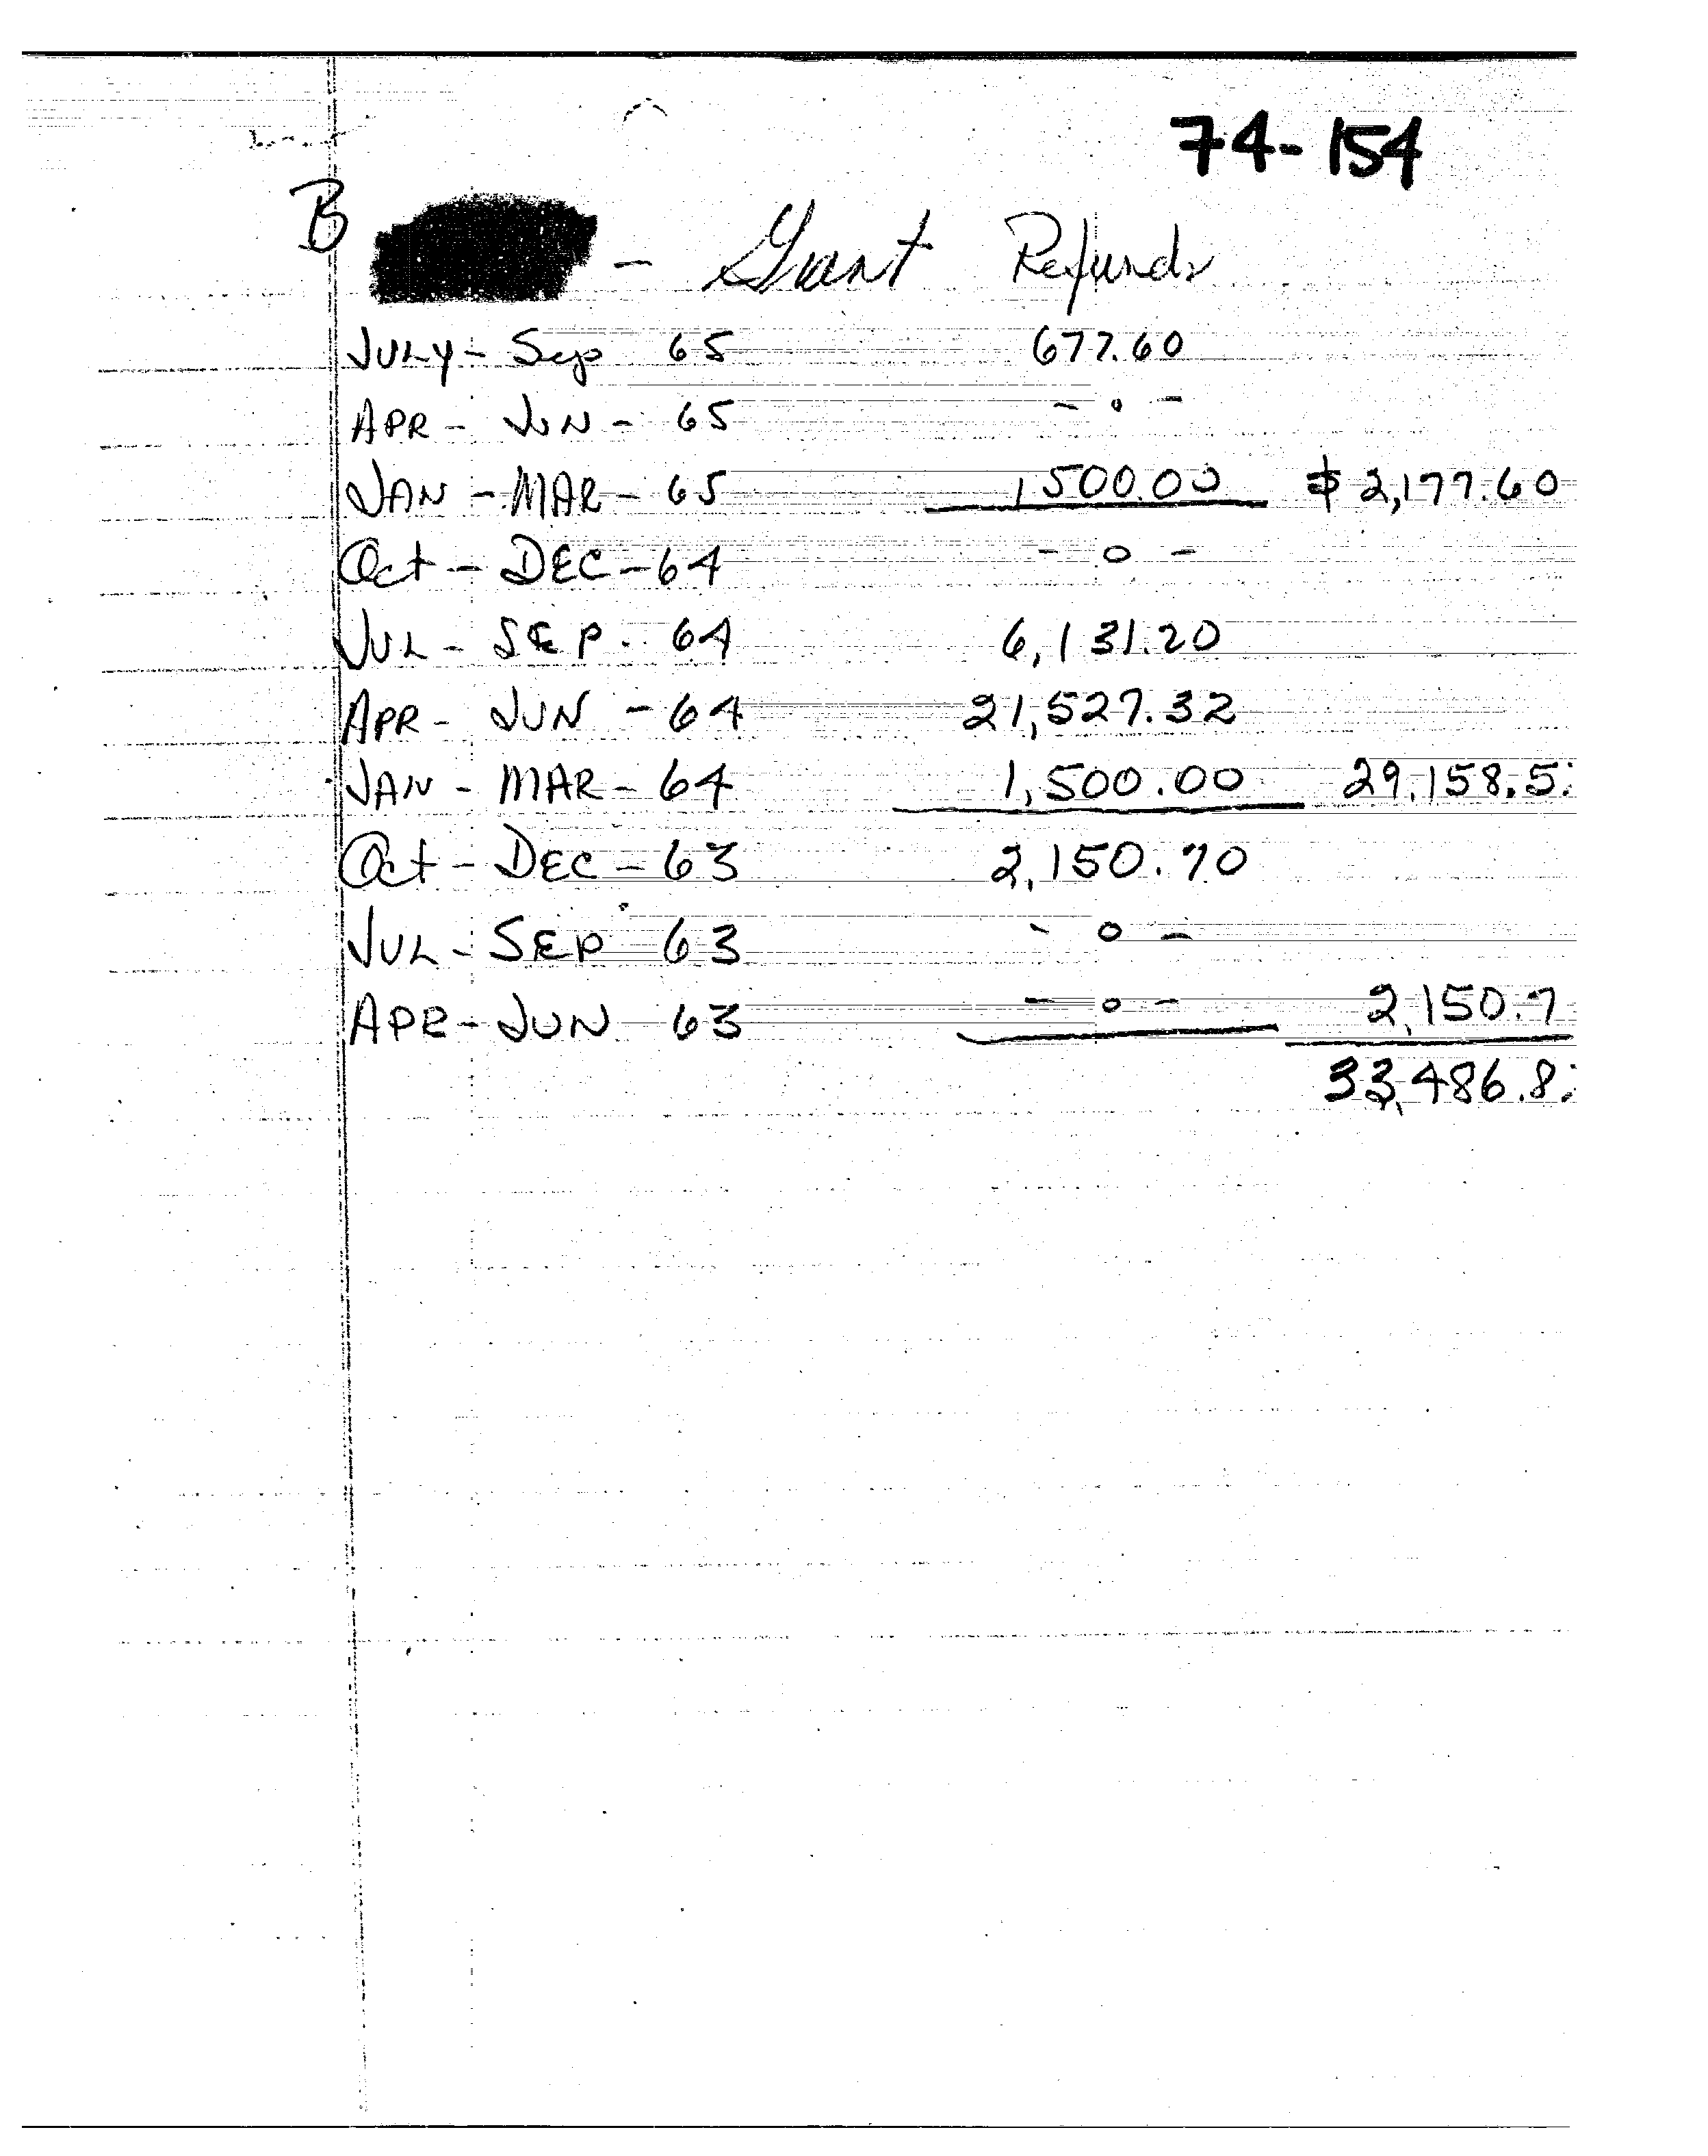 74-154
B - Grant Refunds
JULY - Sep 65 677.60
APR - JUN - 65 - 0 -
JAN - MAR - 65 1500.00 $ 2,177.60
Oct - DEC - 64 - 0 -
JUL - SEP. 64 6,131.20
APR - JUN - 64 21,527.32
JAN - MAR - 64 1,500.00 29,158.5
Oct - DEC - 63 2,150.70
JUL - SEP 63 - 0 -
APR - JUN 63 - 0 - 2,150.7
33,486.8